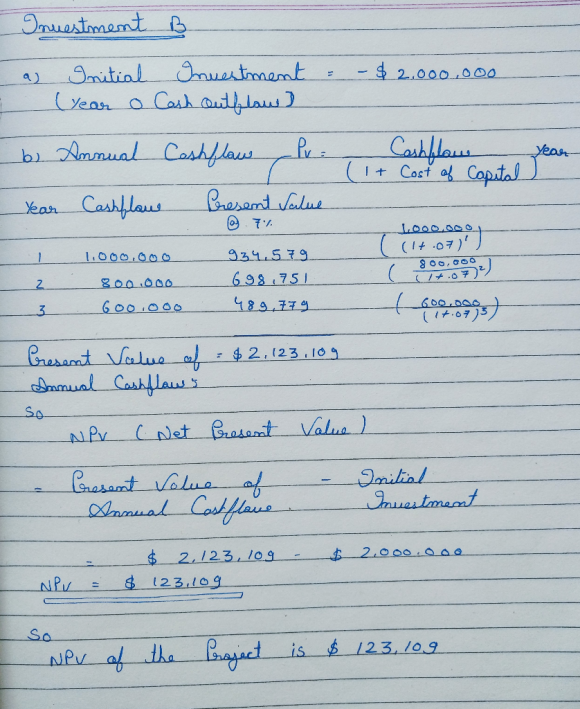 Investment B
a) Initial Investment = - $ 2,000,000
(Year 0 Cash Outflows)
b) Annual Cashflows Pv = Cashflows / (1 + Cost of Capital) Year
Year Cashflows Present Value
@ 7%
1 1,000,000 934,579 (1,000,000 / (1+.07)¹)
2 800,000 698,751 (800,000 / (1+.07)²)
3 600,000 489,779 (600,000 / (1+.07)³)
Present Value of = $ 2,123,109
Annual Cashflows
So
NPV (Net Present Value)
= Present Value of - Initial
Annual Cashflows. Investment
= $ 2,123,109 - $ 2,000,000
NPV = $ 123,109
So
NPV of the Project is $ 123,109